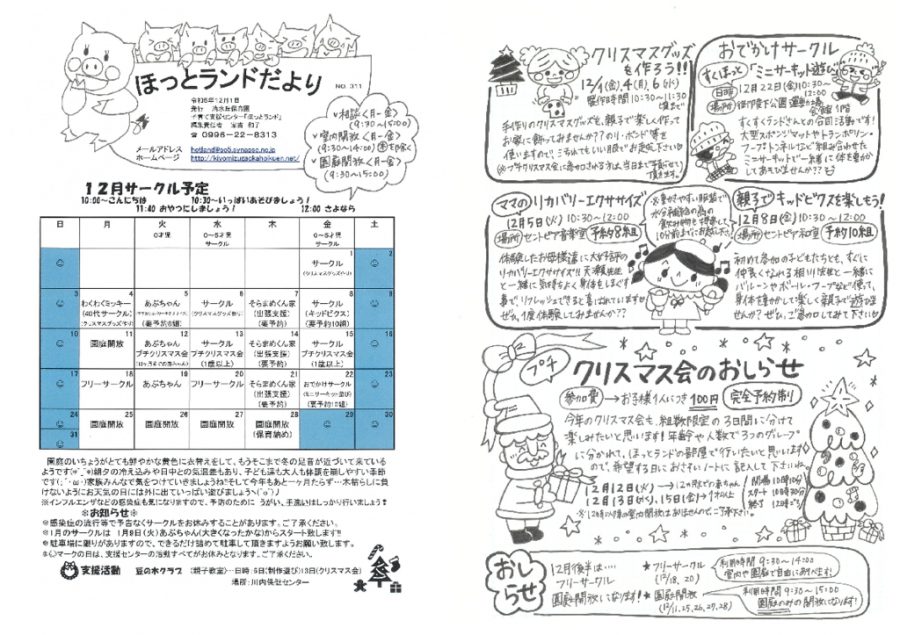 ほっとランドだより
NO. 311
令和5年12月1日
発行 清水丘保育園
子育て支援センター「ほっとランド」
☎ 0996-22-8313
メールアドレス hotland@po5.synapse.ne.jp
ホームページ http://kiyomizugaokahoikuen.net/
相談<月~金>
(9:30~15:00)
室内開放<月~金>
(9:30~14:00)
園庭開放<月~金>
(9:30~15:00)
12月サークル予定
10:00~こんにちは 10:30~いっぱいあそびましょう!
11:40 おやつにしましょう! 12:00 さよなら
日 月 火 水 木 金 土
0才児 0~5才児サークル 0~5才児サークル
1 サークル (クリスマスグッズ作り) 2
3
4 わくわくミッキー (40代サークル) (クリスマスグッズ作り)
5 あぷちゃん (要予約8組)
6 サークル (クリスマスグッズ作り)
7 そらまめくん家 (出張支援) (要予約)
8 サークル (キッドビクス) (要予約10組)
9
10
11 園庭開放
12 あぷちゃん プチクリスマス会
13 サークル プチクリスマス会 (1歳以上)
14 そらまめくん家 (出張支援) (要予約)
15 サークル プチクリスマス会 (1歳以上)
16
17
18 フリーサークル
19 あぷちゃん
20 フリーサークル
21 そらまめくん家 (出張支援) (要予約)
22 おでかけサークル (ミニサーキット遊び) (要予約10組)
23
24
25 園庭開放
26 園庭開放
27 園庭開放
28 園庭開放 (保育納め)
29
30
31
園庭のいちょうがとても鮮やかな黄色に衣替えをして、もうそこまで冬の足音が近づいて来ている
ようです(*^_^*)朝夕の冷え込みや日中との気温差もあり、子ども達も大人も体調を崩しやすい季節
です(;´・ω・)家族みんなで気をつけていきましょうね!そして今年もあと一ヶ月たらず…木枯らしに負
けないようにお天気の日には外に出ていっぱい遊びましょう~(^o^)丿
※インフルエンザなどの感染症も気になりますので、予防のために うがい、手洗いはしっかり行いましょう!
*お知らせ*
※感染症の流行等で予告なくサークルをお休みすることがあります。ご了承ください。
※1月のサークルは 1月9日(火)あぷちゃん(大きくなったかな)からスタート致します!!
※駐車場に限りがありますので、できるだけ詰めて駐車して頂きますようお願い致します。
※☺マークの日は、支援センターの活動すべてがお休みとなります。ご了承ください。
支援活動 豆の木クラブ (親子教室)…日時:6日(制作遊び)13日(クリスマス会)
場所:川内保健センター
クリスマスグッズを作ろう!!
12/1(金),4(月),6(水)
製作時間 10:30~11:30頃まで
手作りのクリスマスグッズを、親子で楽しく作って
お家に飾ってみませんか??のり・ボンド等を
使いますので、汚れてもいい服でお越し下さい
おでかけサークル
すくほっと「ミニサーキット遊び」
日時 12月22日(金)10:30~12:00
すくすくランドさんとの合同活動です!
大型スポンジマットやトランポリン・
フープトンネルなどを組み合わせた
ミニサーキットで一緒に体を動か
してあそびませんか??
ママのリカバリーエクササイズ
12月5日(火)10:30~12:00
場所 セントピア音楽室 予約8組
※動きやすい服装で
水分補給の為の
飲み物を準備して
10分前までにお越し下さい。
体験したお母様達に大好評の
リカバリーエクササイズ!!天瀬先生
と一緒に気持ちよく身体をほぐす
事で、リフレッシュできると喜ばれていますが
ぜひ、1度体験してみませんか??
親子でキッドビクスを楽しもう!
12月8日(金)10:30~12:00
場所 セントピア和室 予約10組
初めて参加の子どもたちとも、すぐに
仲良くなれる相川先生と一緒に
バルーンやボール・フープなど使って、
身体を動かして楽しく親子で遊びま
せんか? ぜひ、ご参加してみて下さい
プチ クリスマス会のおしらせ
参加費 → お子様1人につき100円 完全予約制
今年のクリスマス会も、組数限定の3日間に分けて
楽しみたいと思います!年齢や人数で3つのグループ
に分かれて、ほっとランドの部屋で行いたいと思います
ので、希望する日におさそいノートに記入して下さいね。
12月12日(火)
12月13日(水),15日(金)→1才以上
開場 10時15分
スタート 10時30分
終了 12時ごろ
おしらせ
12月後半は……
フリーサークル
園庭開放になります!
★フリーサークル (12/18、20)
利用時間 9:30~14:00
室内や園庭で自由にあそべます!
★園庭開放 (12/11,25,26,27,28)
利用時間 9:30~15:00
園庭のみの開放になります!